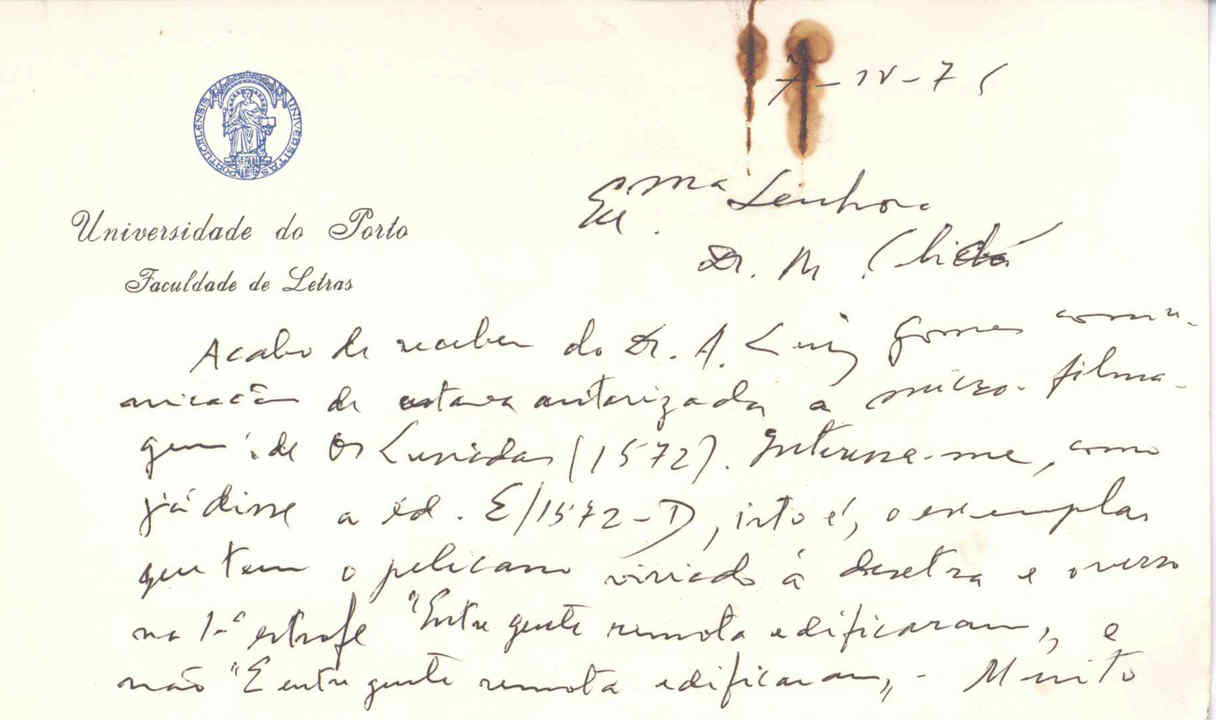 UNIVERSITAS PORTUCALENSIS
7-IV-76
Universidade do Porto
Faculdade de Letras
Exma Senhora
Dr. M.
Acabo de receber do Dr. A. Luiz Gomes comu-
nicação de estar autorizada a micro-filma-
gem de Os Lusíadas (1572). Interessa-me, como
já disse a ed. E/1572-D, isto é, o exemplar
que tem o pelicano virado à destra e o verso
na 1.ª estrofe "Entre gente remota edificaram", e
não "E entre gente remota edificaram". - Muito